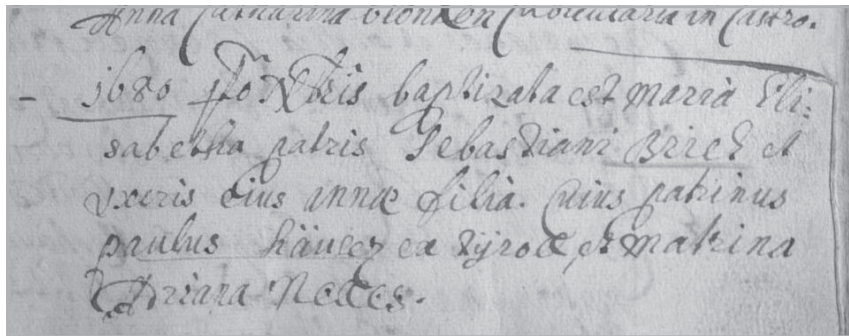 Anna Catharina in Castro.
1680 Xbris baptizata est maria Eli:
sabetha patris Sebastiani Birck et
uxoris eius annæ filia. Cuius patrinus
paulus ex et matrina
Adriana Neces.